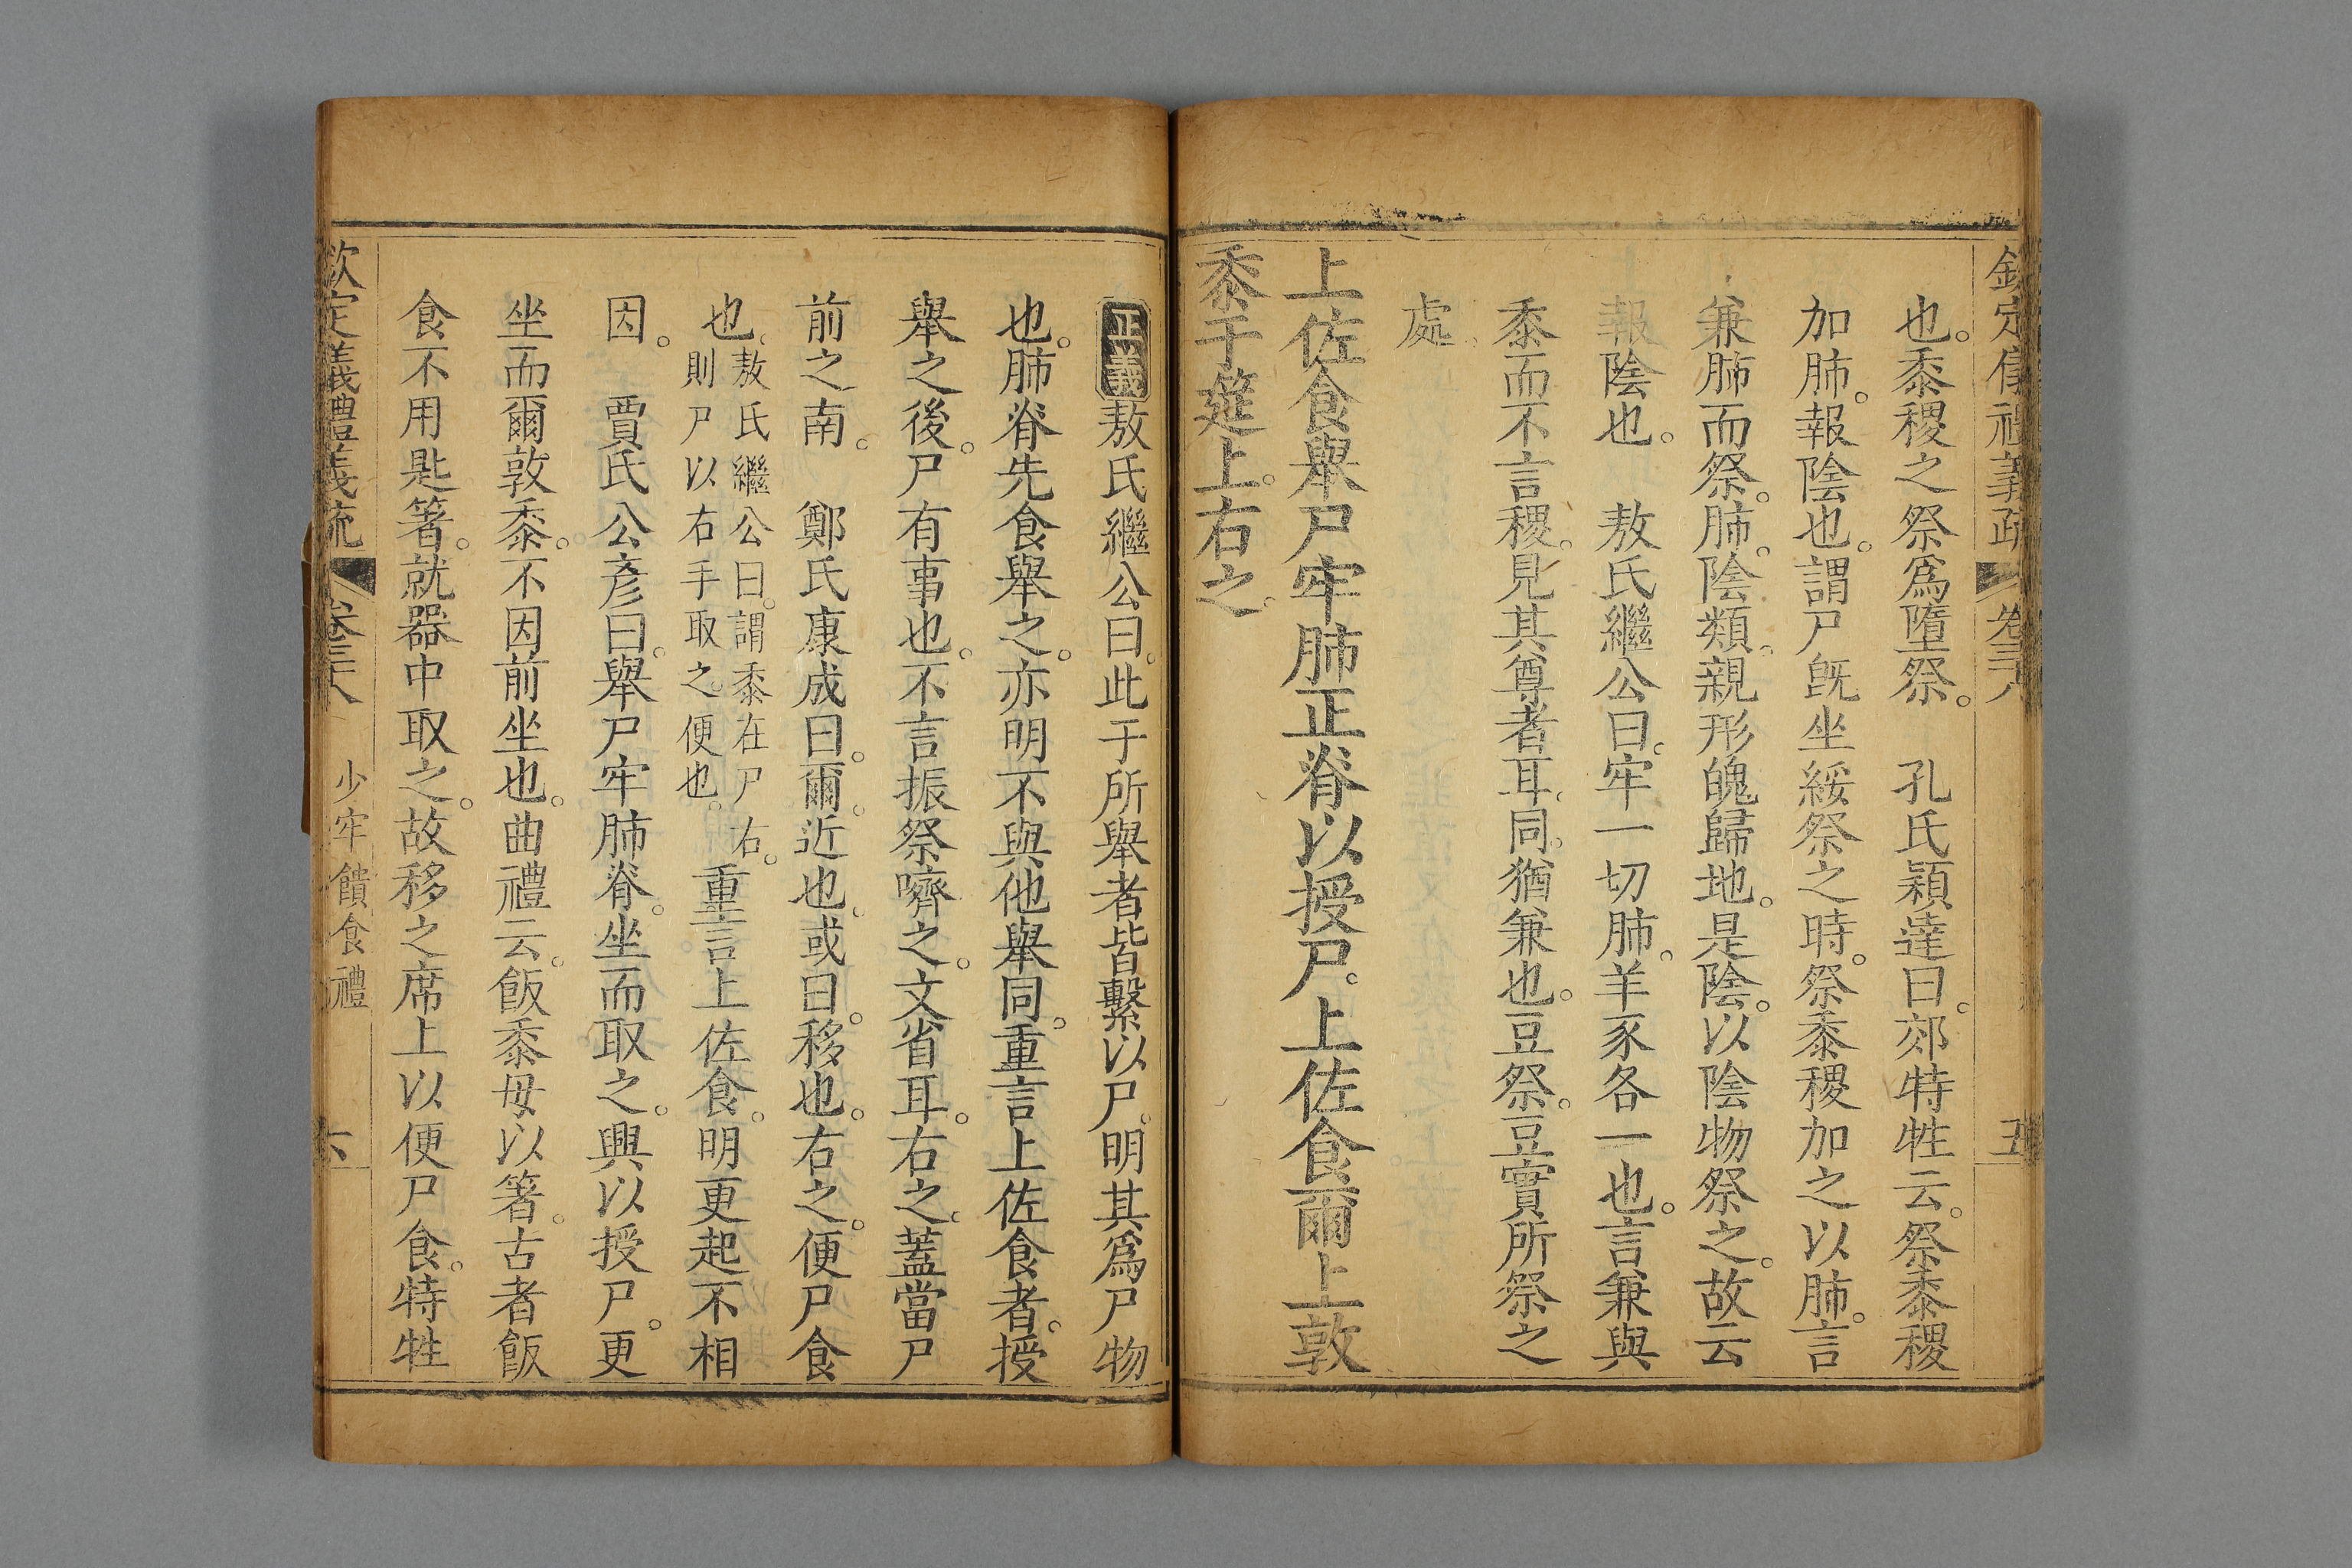 欽定儀禮義疏 卷三十八 五
也。黍稷之祭爲墮祭。 孔氏穎達曰。郊特牲云。祭黍稷
加肺。報陰也。謂尸旣坐綏祭之時。祭黍稷加之以肺。言
兼肺而祭。肺。陰類。親形魄歸地。是陰。以陰物祭之。故云
報陰也。 敖氏繼公曰。牢一切肺。羊豕各一也。言兼與
黍而不言稷。見其尊者耳。同。猶兼也。豆祭。豆實所祭之
處。
上佐食舉尸牢肺正脊以授尸。上佐食爾上敦
黍于筵上。右之。
正義敖氏繼公曰。此于所舉者皆繫以尸。明其爲尸物
也。肺脊先食舉之。亦明不與他舉同。重言上佐食者。授
舉之後。尸有事也。不言振祭嚌之。文省耳。右之。蓋當尸
前之南。 鄭氏康成曰。爾。近也。或曰。移也。右之。便尸食
也。敖氏繼公曰。謂黍在尸右。則尸以右手取之。便也。重言上佐食。明更起不相
因。 賈氏公彥曰。舉尸牢肺脊。坐而取之。興以授尸。更
坐而爾敦黍。不因前坐也。曲禮云。飯黍毋以箸。古者飯
食不用匙箸。就器中取之。故移之席上以便尸食。特牲
欽定義禮義疏 卷三十八 少牢饋食禮 六